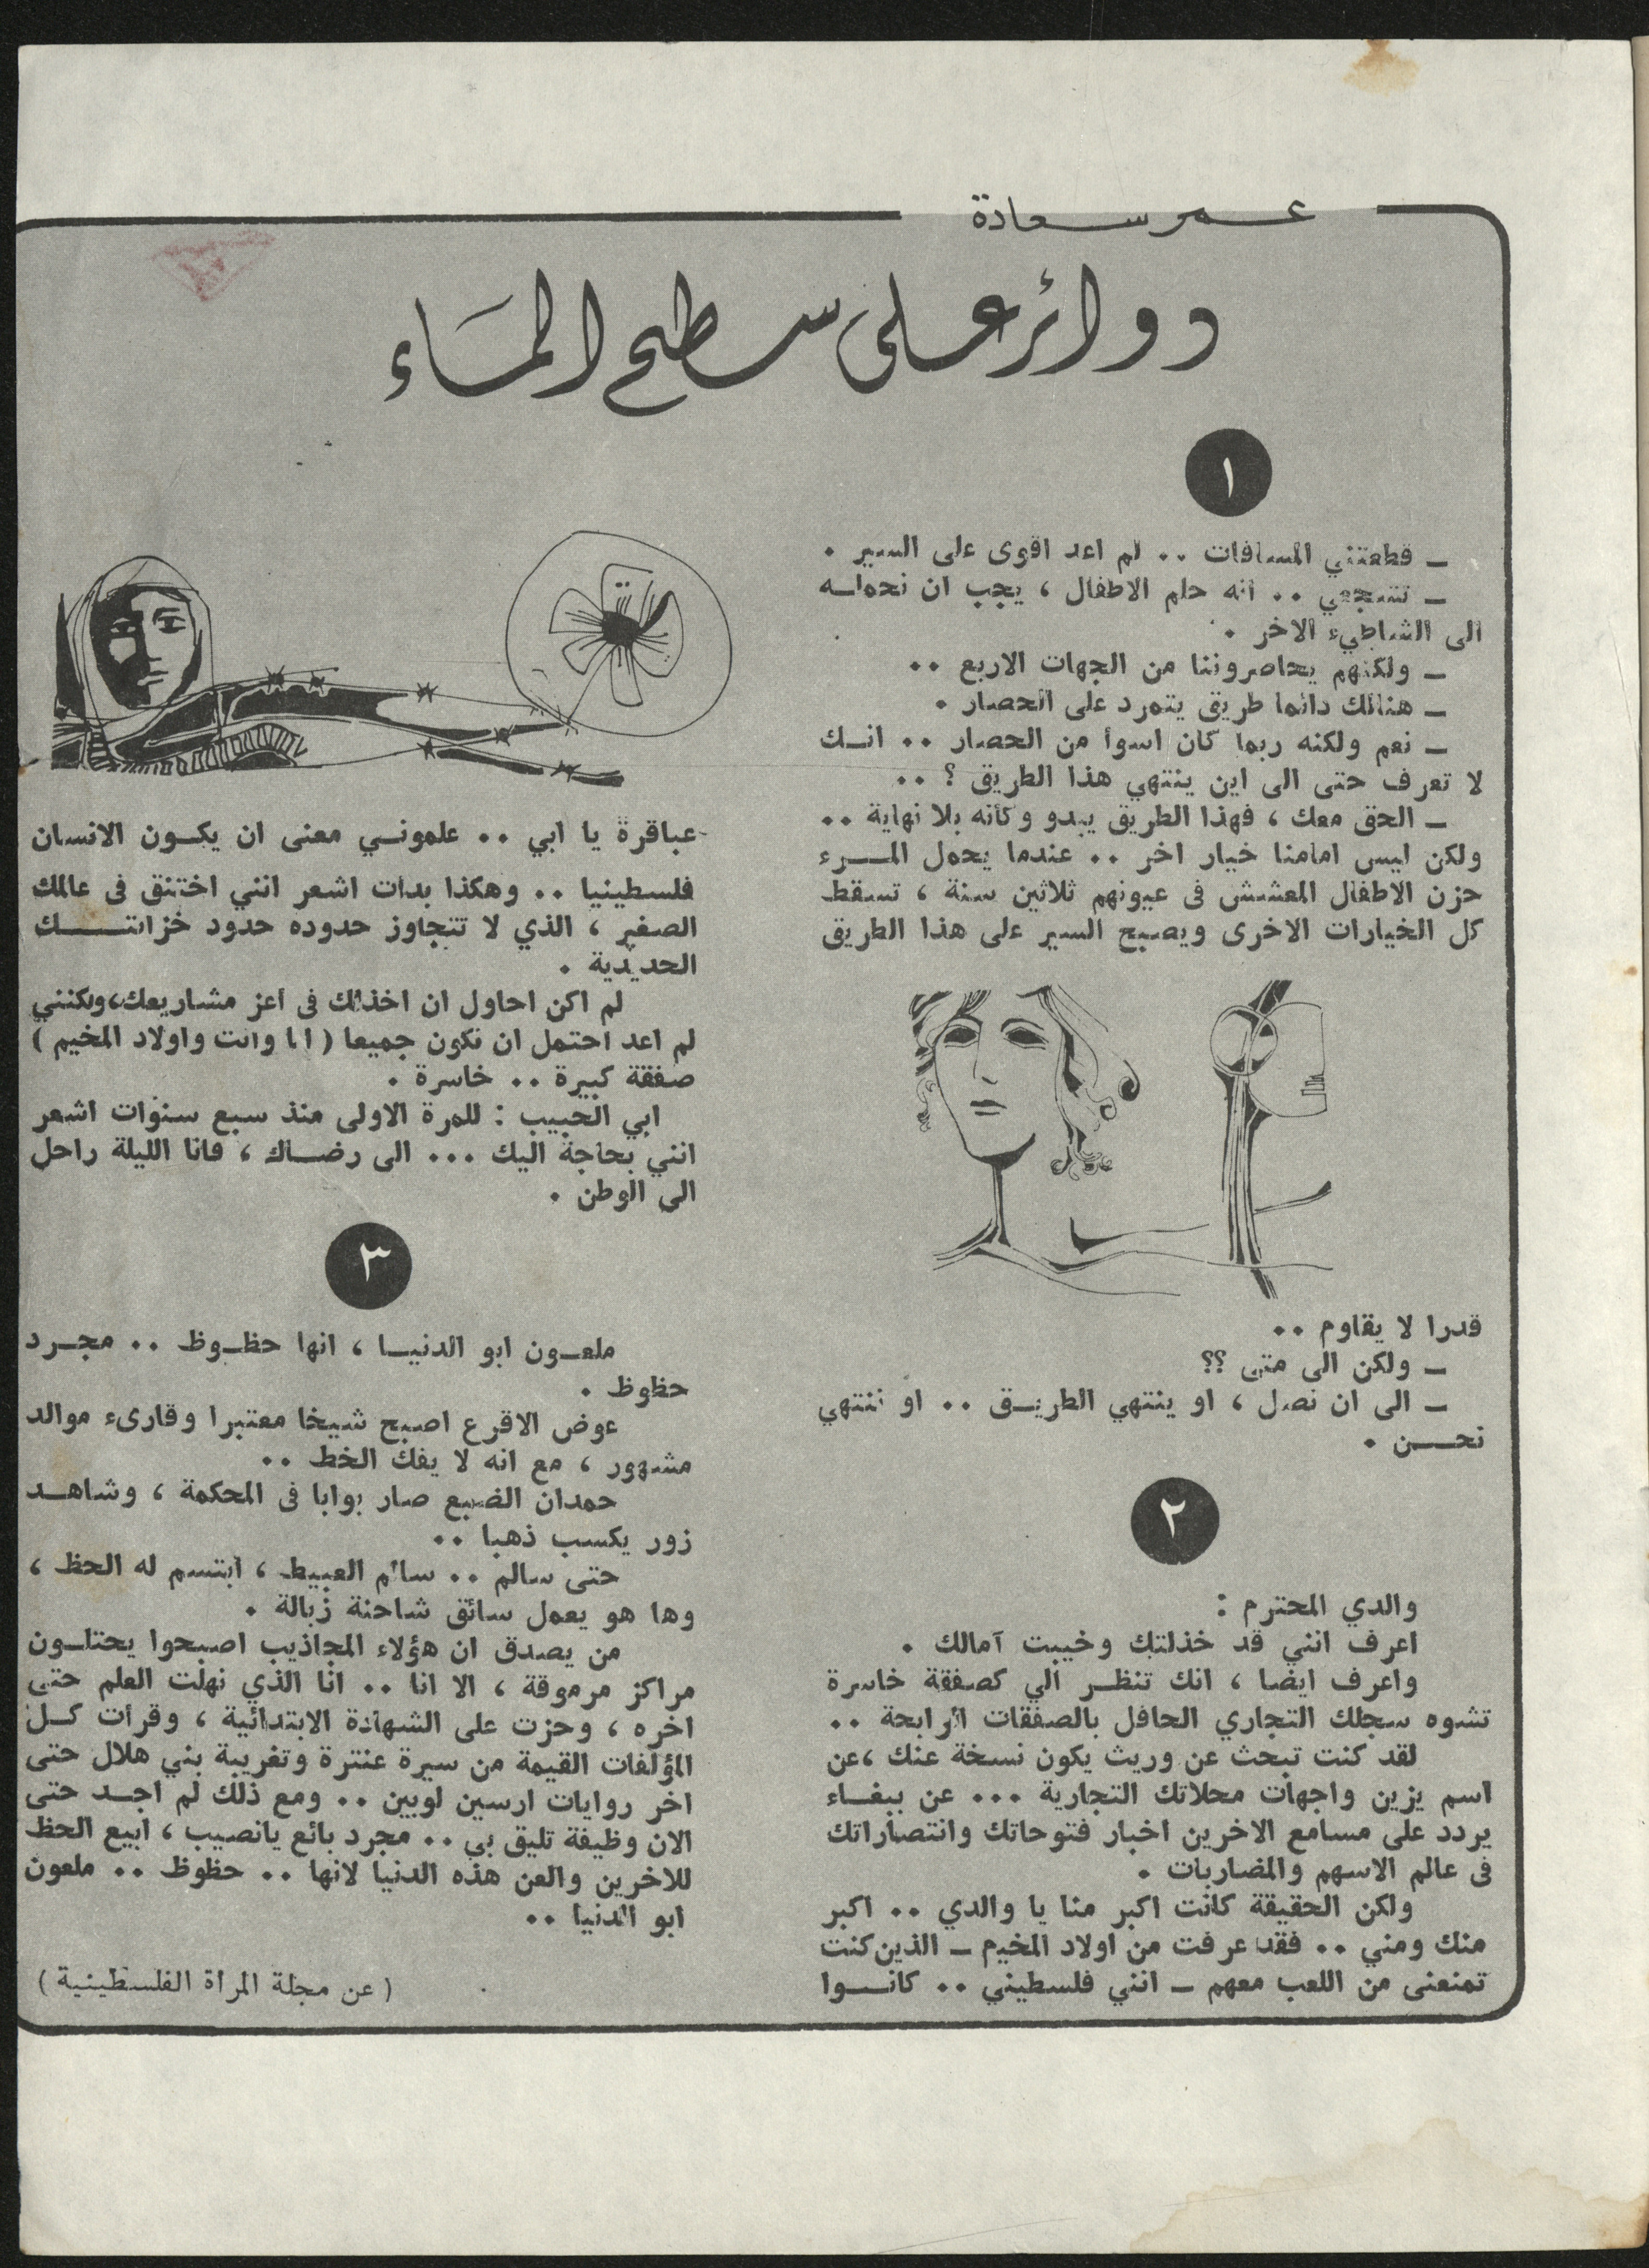 عمر سعادة
دوائر على سطح الماء
١
ـ قطعتني المسافات .. لم اعد اقوى على السير .
ـ تشجعي .. انه حلم الاطفال ، يجب ان نحمله
الى الشاطيء الاخر .
ـ ولكنهم يحاصروننا من الجهات الاربع ..
ـ هنالك دائما طريق يتمرد على الحصار .
ـ نعم ولكنه ربما كان اسوأ من الحصار .. انك
لا تعرف حتى الى اين ينتهي هذا الطريق ؟ ..
ـ الحق معك ، فهذا الطريق يبدو وكأنه بلا نهاية ..
ولكن ليس امامنا خيار اخر .. عندما يحمل المرء
حزن الاطفال المعشش فى عيونهم ثلاثين سنة ، تسقط
كل الخيارات الاخرى ويصبح السير على هذا الطريق
قدرا لا يقاوم ..
ـ ولكن الى متى ؟؟
ـ الى ان نصل ، او ينتهي الطريق .. او ننتهي
نحن .
٢
والدي المحترم :
اعرف انني قد خذلتك وخيبت آمالك .
واعرف ايضا ، انك تنظر الي كصفقة خاسرة
تشوه سجلك التجاري الحافل بالصفقات الرابحة ..
لقد كنت تبحث عن وريث يكون نسخة عنك ،عن
اسم يزين واجهات محلاتك التجارية ... عن ببغاء
يردد على مسامع الاخرين اخبار فتوحاتك وانتصاراتك
فى عالم الاسهم والمضاربات .
ولكن الحقيقة كانت اكبر منا يا والدي .. اكبر
منك ومني .. فقد عرفت من اولاد المخيم ـ الذين كنت
تمنعنى من اللعب معهم ـ انني فلسطيني .. كانوا
عباقرة يا ابي .. علموني معنى ان يكون الانسان
فلسطينيا .. وهكذا بدات اشعر انني اختنق فى عالمك
الصغير ، الذي لا تتجاوز حدوده حدود خزانتك
الحديدية .
لم اكن احاول ان اخذلك فى اعز مشاريعك،ولكنني
لم اعد احتمل ان نكون جميعا ( انا وانت واولاد المخيم )
صفقة كبيرة .. خاسرة .
ابي الحبيب : للمرة الاولى منذ سبع سنوات اشعر
انني بحاجة اليك ... الى رضاك ، فانا الليلة راحل
الى الوطن .
٣
ملعون ابو الدنيا ، انها حظوظ .. مجرد
حظوظ .
عوض الاقرع اصبح شيخا معتبرا وقارىء موالد
مشهور ، مع انه لا يفك الخط ..
حمدان الضبع صار بوابا فى المحكمة ، وشاهد
زور يكسب ذهبا ..
حتى سالم .. سالم العبيط ، ابتسم له الحظ ،
وها هو يعمل سائق شاحنة زبالة .
من يصدق ان هؤلاء المجاذيب اصبحوا يحتلون
مراكز مرموقة ، الا انا .. انا الذي نهلت العلم حتى
اخره ، وحزت على الشهادة الابتدائية ، وقرأت كل
المؤلفات القيمة من سيرة عنترة وتغريبة بني هلال حتى
اخر روايات ارسين لوبين .. ومع ذلك لم اجد حتى
الان وظيفة تليق بي .. مجرد بائع يانصيب ، ابيع الحظ
للاخرين والعن هذه الدنيا لانها .. حظوظ .. ملعون
ابو الدنيا ..
( عن مجلة المرأة الفلسطينية )